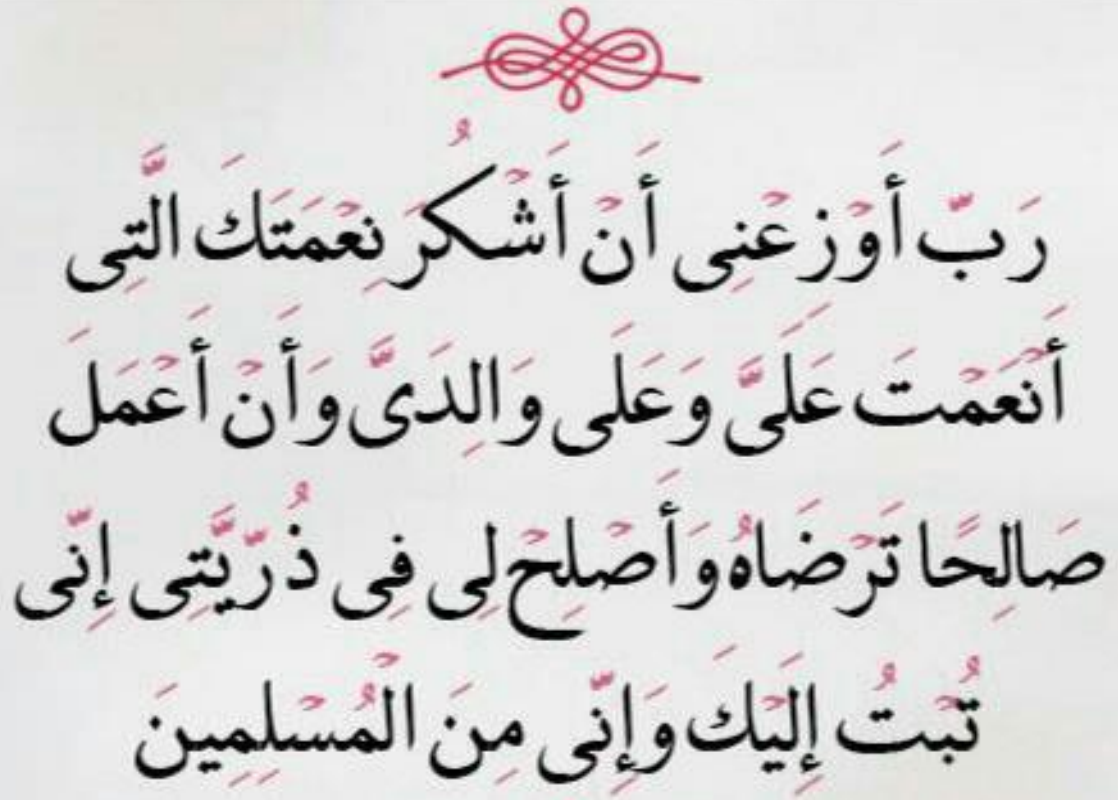 رَبِّ أَوْزِعْنِى أَنْ أَشْكُرَ نِعْمَتَكَ الَّتِى
أَنْعَمْتَ عَلَىَّ وَعَلَى وَالِدَىَّ وَأَنْ أَعْمَلَ
صَالِحًا تَرْضَاهُ وَأَصْلِحْ لِى فِى ذُرِّيَّتِى إِنِّى
تُبْتُ إِلَيْكَ وَإِنِّى مِنَ الْمُسْلِمِينَ